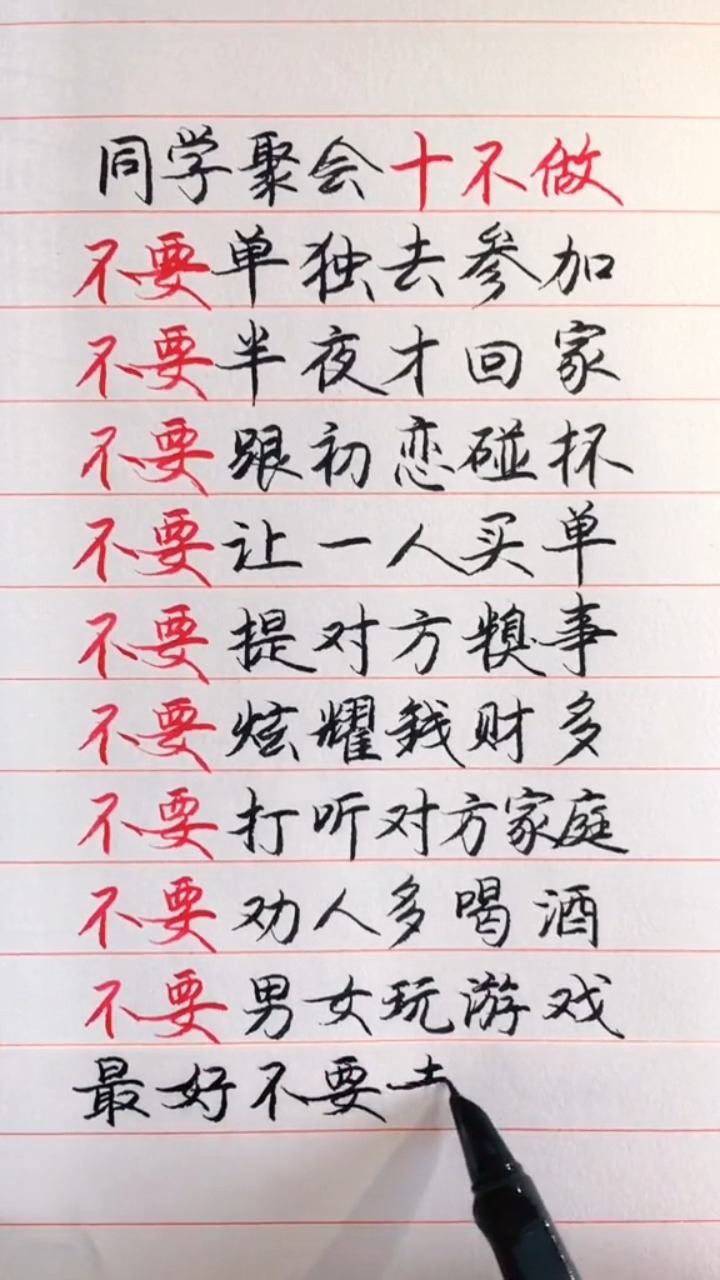 同学聚会十不做
不要单独去参加
不要半夜才回家
不要跟初恋碰杯
不要让一人买单
不要提对方糗事
不要炫耀钱财多
不要打听对方家庭
不要劝人多喝酒
不要男女玩游戏
最好不要